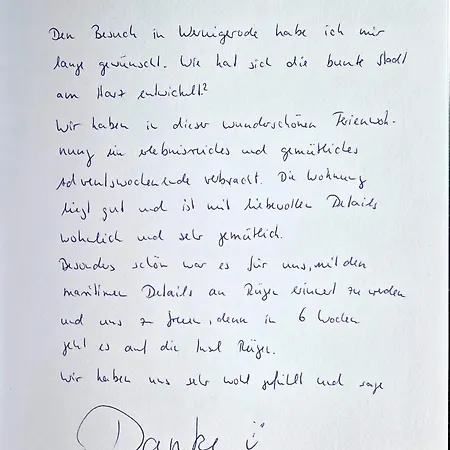 Den Besuch in Wernigerode habe ich mir
lange gewünscht. Wie hat sich die bunte Stadt
am Harz entwickelt?
Wir haben in dieser wunderschönen Ferienwoh-
nung ein erlebnisreiches und gemütliches
Adventswochenende verbracht. Die Wohnung
liegt gut und ist mit liebevollen Details
wohnlich und sehr gemütlich.
Besonders schön war es für uns, mit den
maritimen Details an Rügen erinnert zu werden
und uns zu freuen, denn in 6 Wochen
geht es auf die Insel Rügen.
Wir haben uns sehr wohl gefühlt und sage
Danke